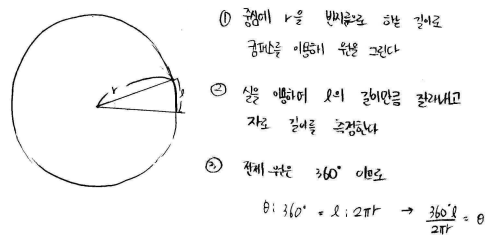 ① 중심에 r을 반지름으로 하는 길이로
컴퍼스를 이용해 원을 그린다
② 실을 이용하여 l의 길이만큼 잘라내고
자로 길이를 측정한다
③ 전체 원은 360° 이므로
θ : 360° = l : 2πr → 360°l / 2πr = θ
r
l